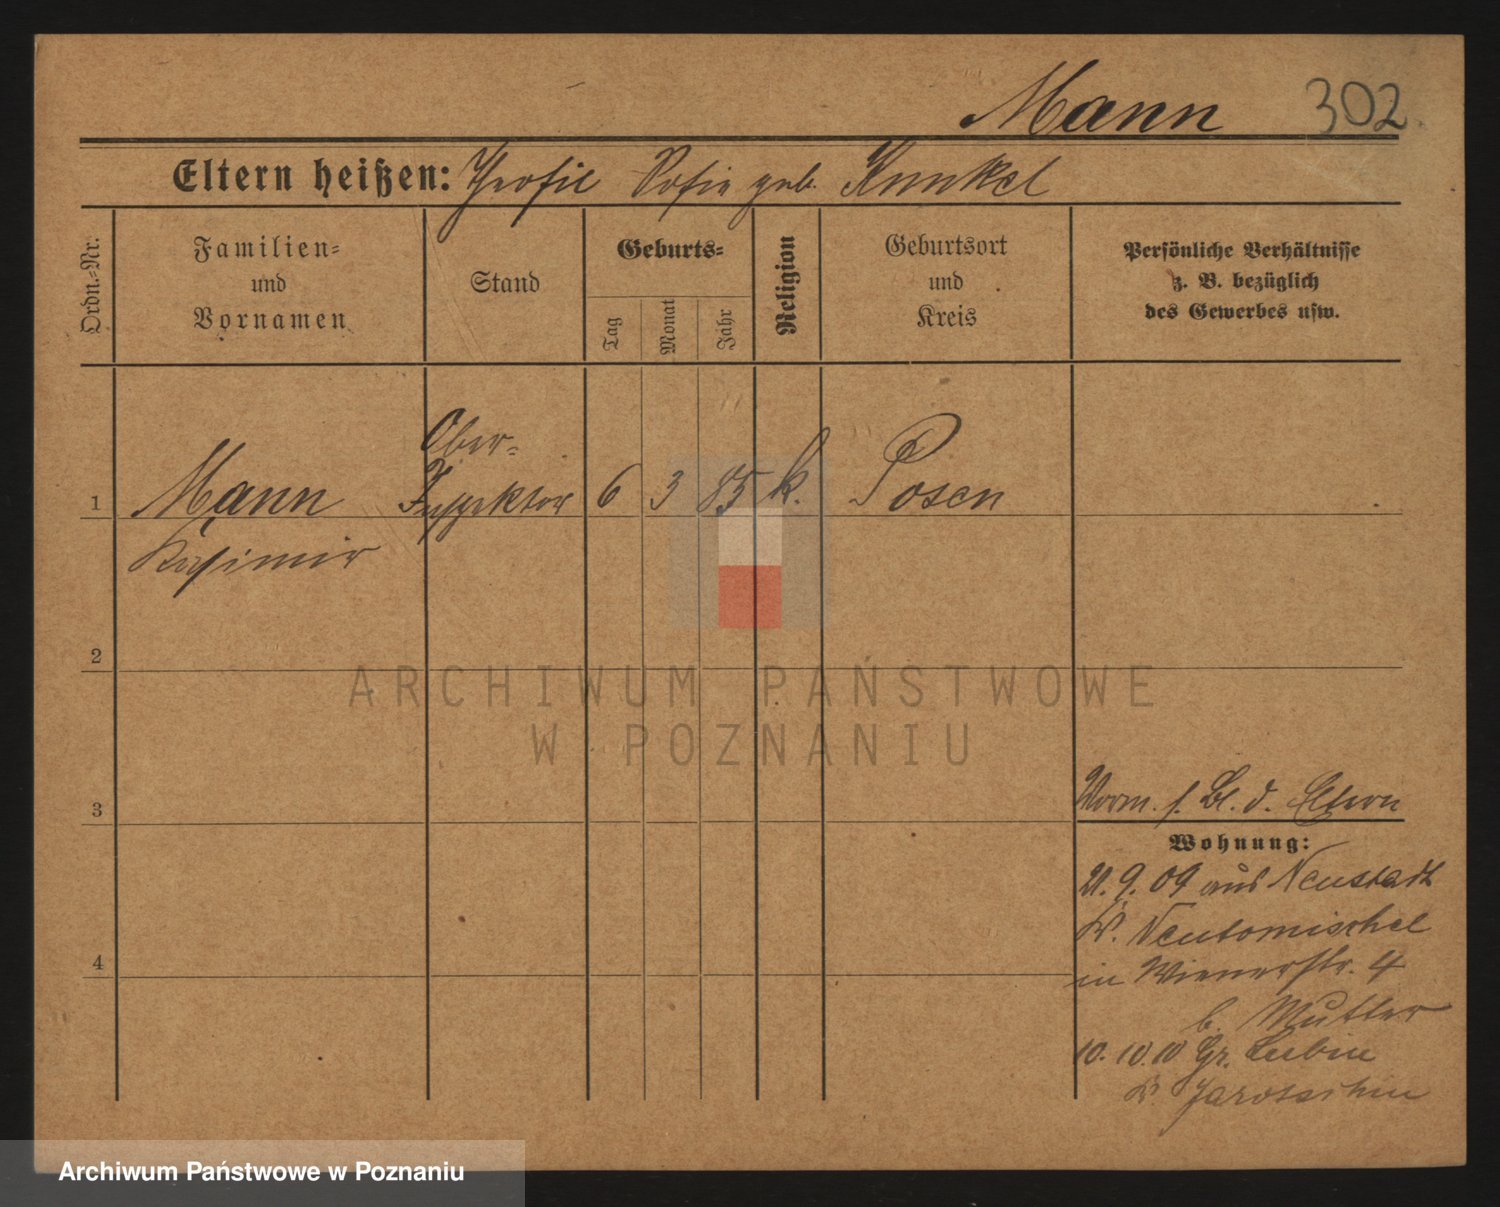 Mann 302.
Eltern heißen: Theofil Sofie geb. Kunkel
Ordn.-Nr.
Familien-
und
Vornamen
Stand
Geburts-
Tag
Monat
Jahr
Religion
Geburtsort
und
Kreis
Persönliche Verhältnisse
z. B. bezüglich
des Gewerbes usw.
Ober-
1 Mann Inspektor 6 3 85 k. Posen
Kasimir
2
ARCHIWUM PAŃSTWOWE
W POZNANIU
3
Vorm. s. Bl. d. Eltern
Wohnung:
21.9.09 aus Neustadt
Kr. Neutomischel
in Wienerstr. 4
b. Mutter
10.10.10 Gr. Lubin
Kr. Jarotschin
4
Archiwum Państwowe w Poznaniu